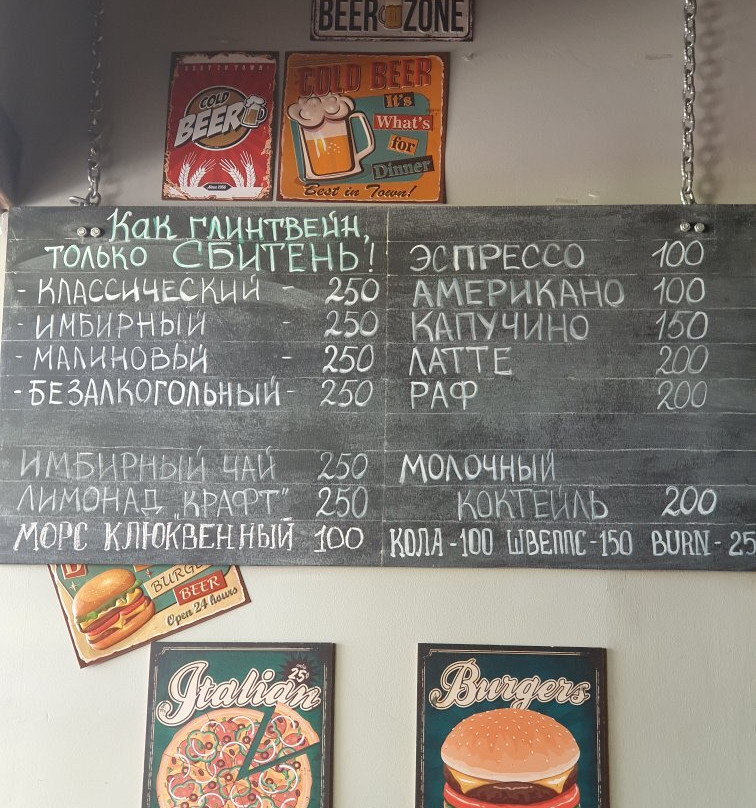 BEER ZONE
BEST IN TOWN!
COLD
BEER
Since 1986
COLD BEER
It's
What's
for
Dinner
Best in Town!
Как ГЛИНТВЕЙН,
ТОЛЬКО СБИТЕНЬ!
- КЛАССИЧЕСКИЙ - 250
- ИМБИРНЫЙ - 250
- МАЛИНОВЫЙ - 250
- БЕЗАЛКОГОЛЬНЫЙ - 250
ИМБИРНЫЙ ЧАЙ 250
ЛИМОНАД „КРАФТ" 250
МОРС КЛЮКВЕННЫЙ 100
ЭСПРЕССО 100
АМЕРИКАНО 100
КАПУЧИНО 150
ЛАТТЕ 200
РАФ 200
МОЛОЧНЫЙ
КОКТЕЙЛЬ 200
КОЛА - 100 ШВЕППС - 150 BURN - 25
BURGE
BEER
Open 24 hours
Italian
only
25¢
Burgers